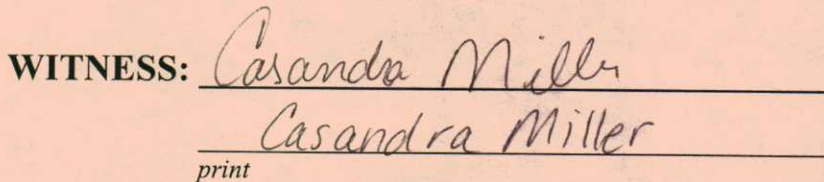 WITNESS: Casandra Miller
Casandra Miller
print